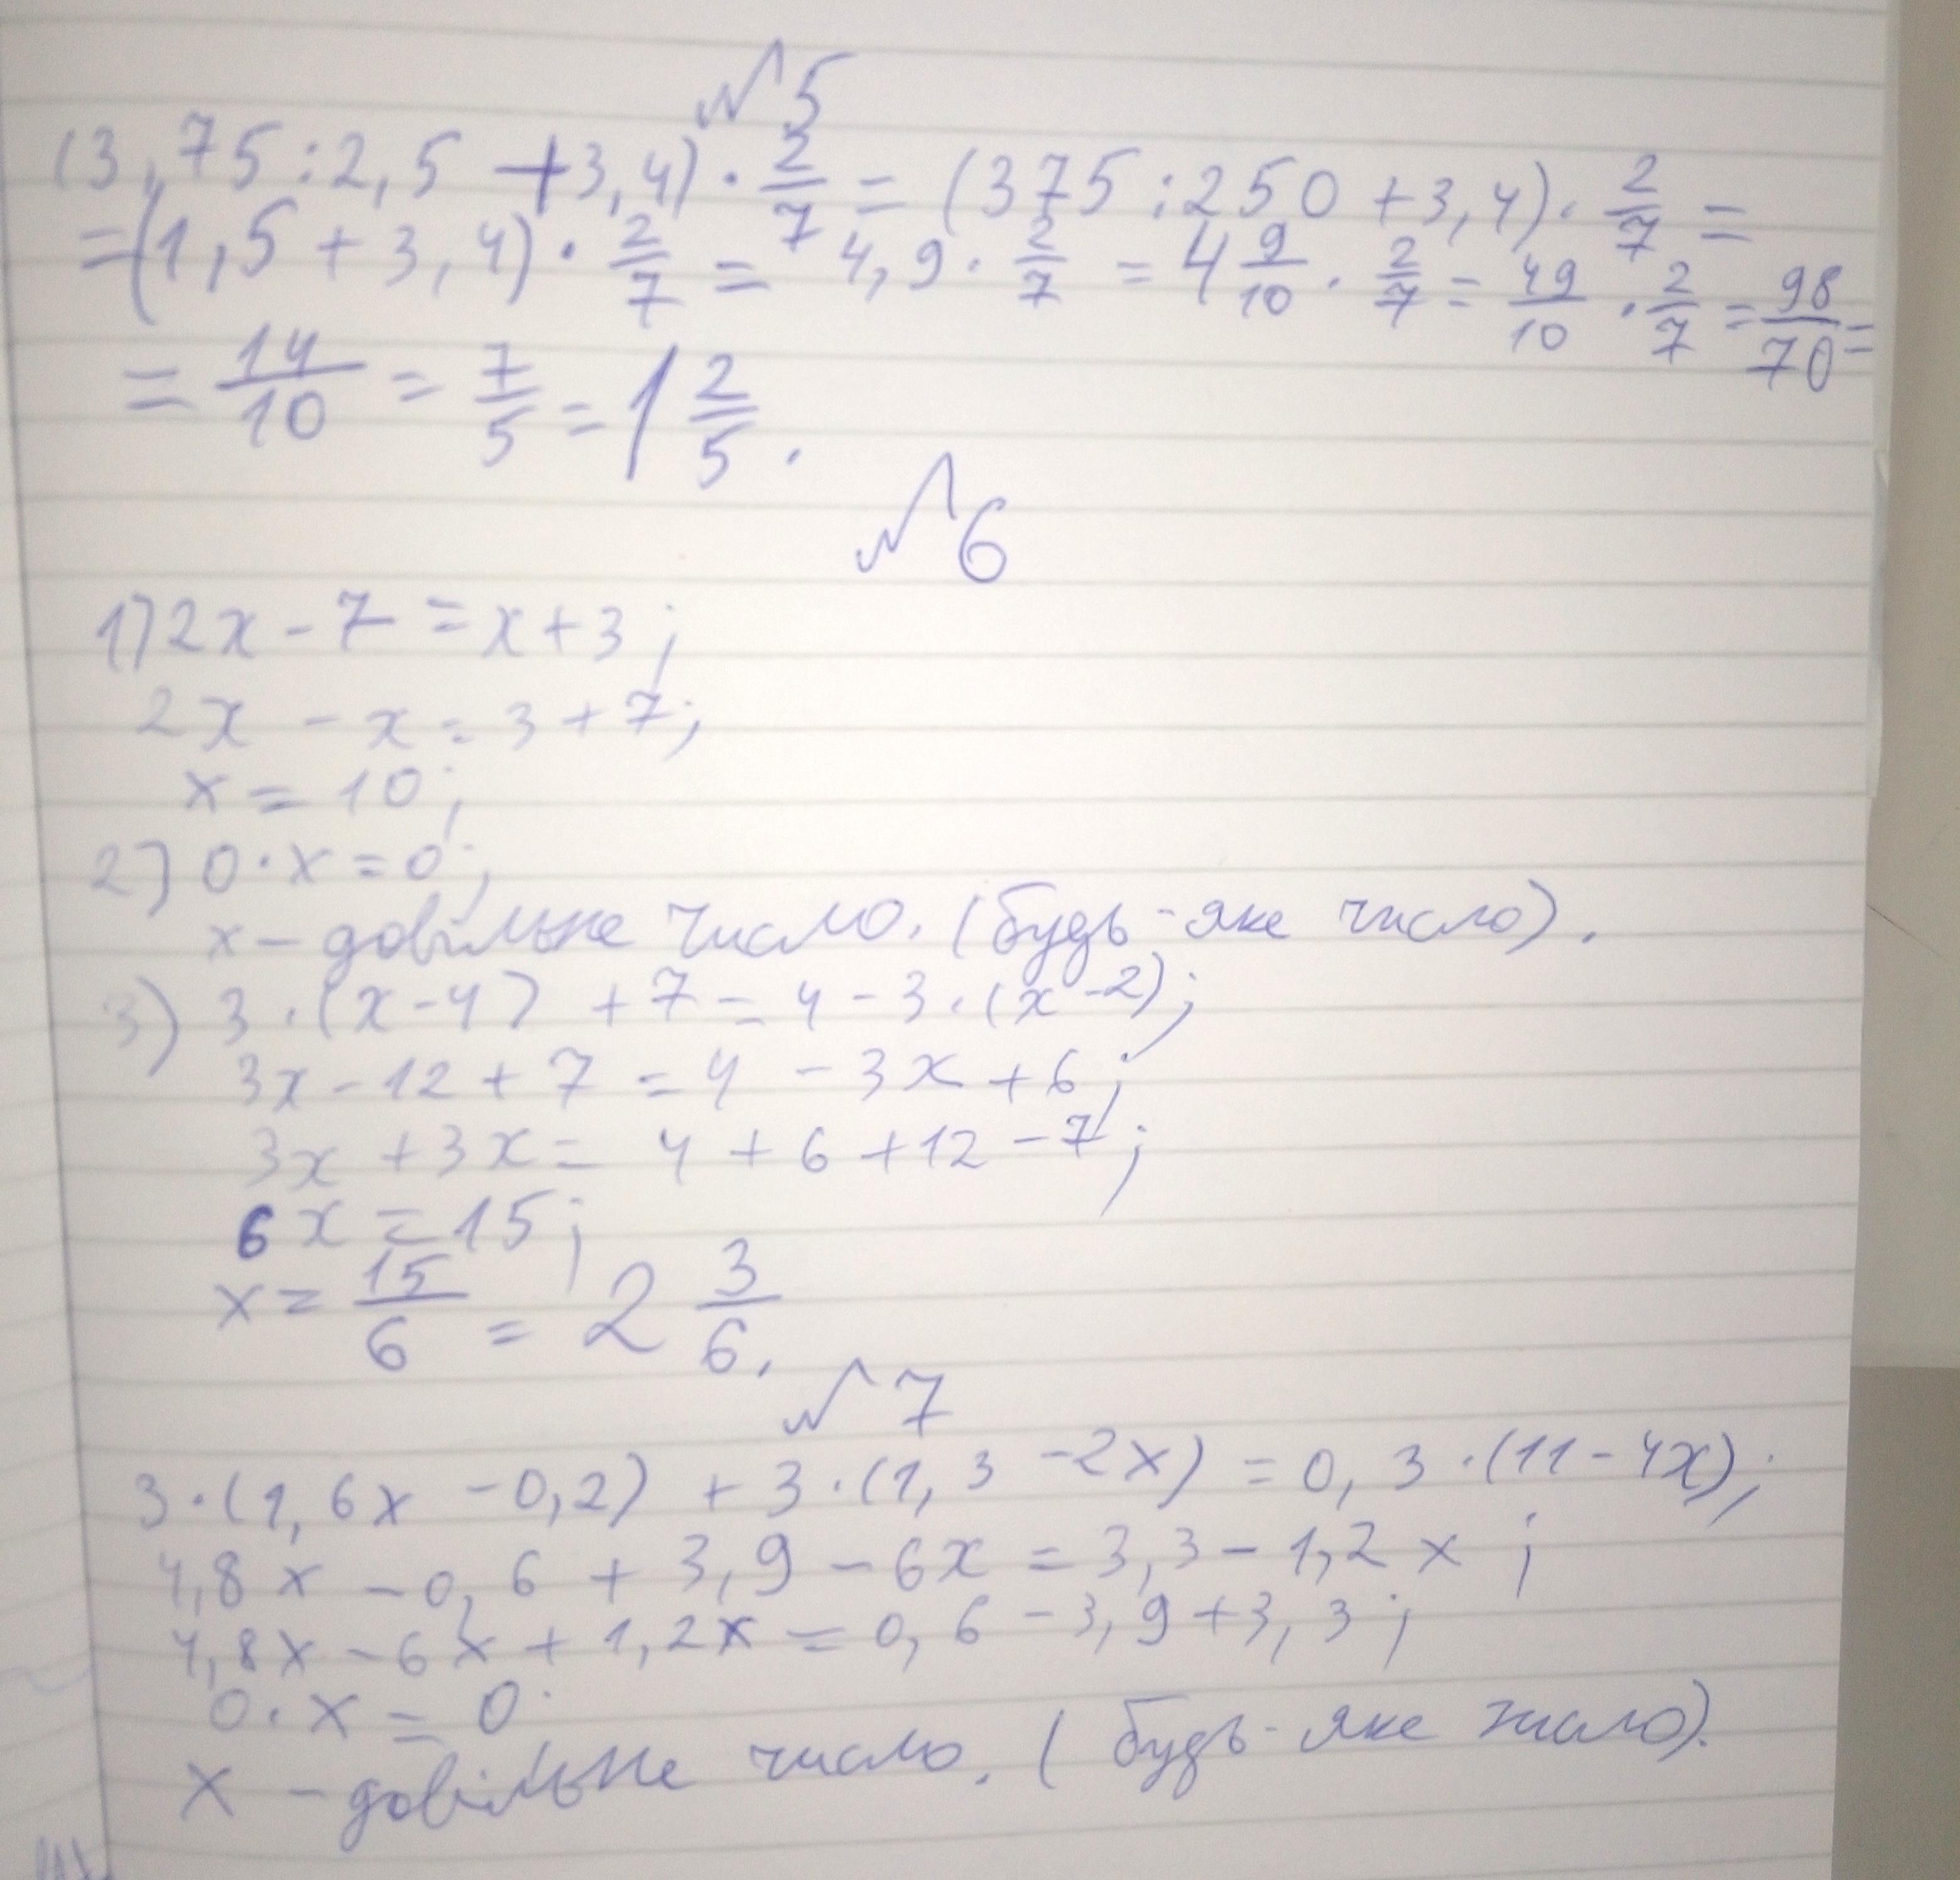 №5
(3,75:2,5 + 3,4) · 2/7 = (375:250 + 3,4) · 2/7 =
= (1,5 + 3,4) · 2/7 = 4,9 · 2/7 = 4 9/10 · 2/7 = 49/10 · 2/7 = 98/70 =
= 14/10 = 7/5 = 1 2/5 .
№6
1) 2x - 7 = x + 3;
2x - x = 3 + 7;
x = 10;
2) 0 · x = 0;
x - довільне число. (будь-яке число).
3) 3 · (x - 4) + 7 = 4 - 3 · (x - 2);
3x - 12 + 7 = 4 - 3x + 6;
3x + 3x = 4 + 6 + 12 - 7;
6x = 15;
x = 15/6 = 2 3/6 .
№7
3 · (1,6x - 0,2) + 3 · (1,3 - 2x) = 0,3 · (11 - 4x);
4,8x - 0,6 + 3,9 - 6x = 3,3 - 1,2x;
4,8x - 6x + 1,2x = 0,6 - 3,9 + 3,3;
0 · x = 0
x - довільне число. (будь-яке число).